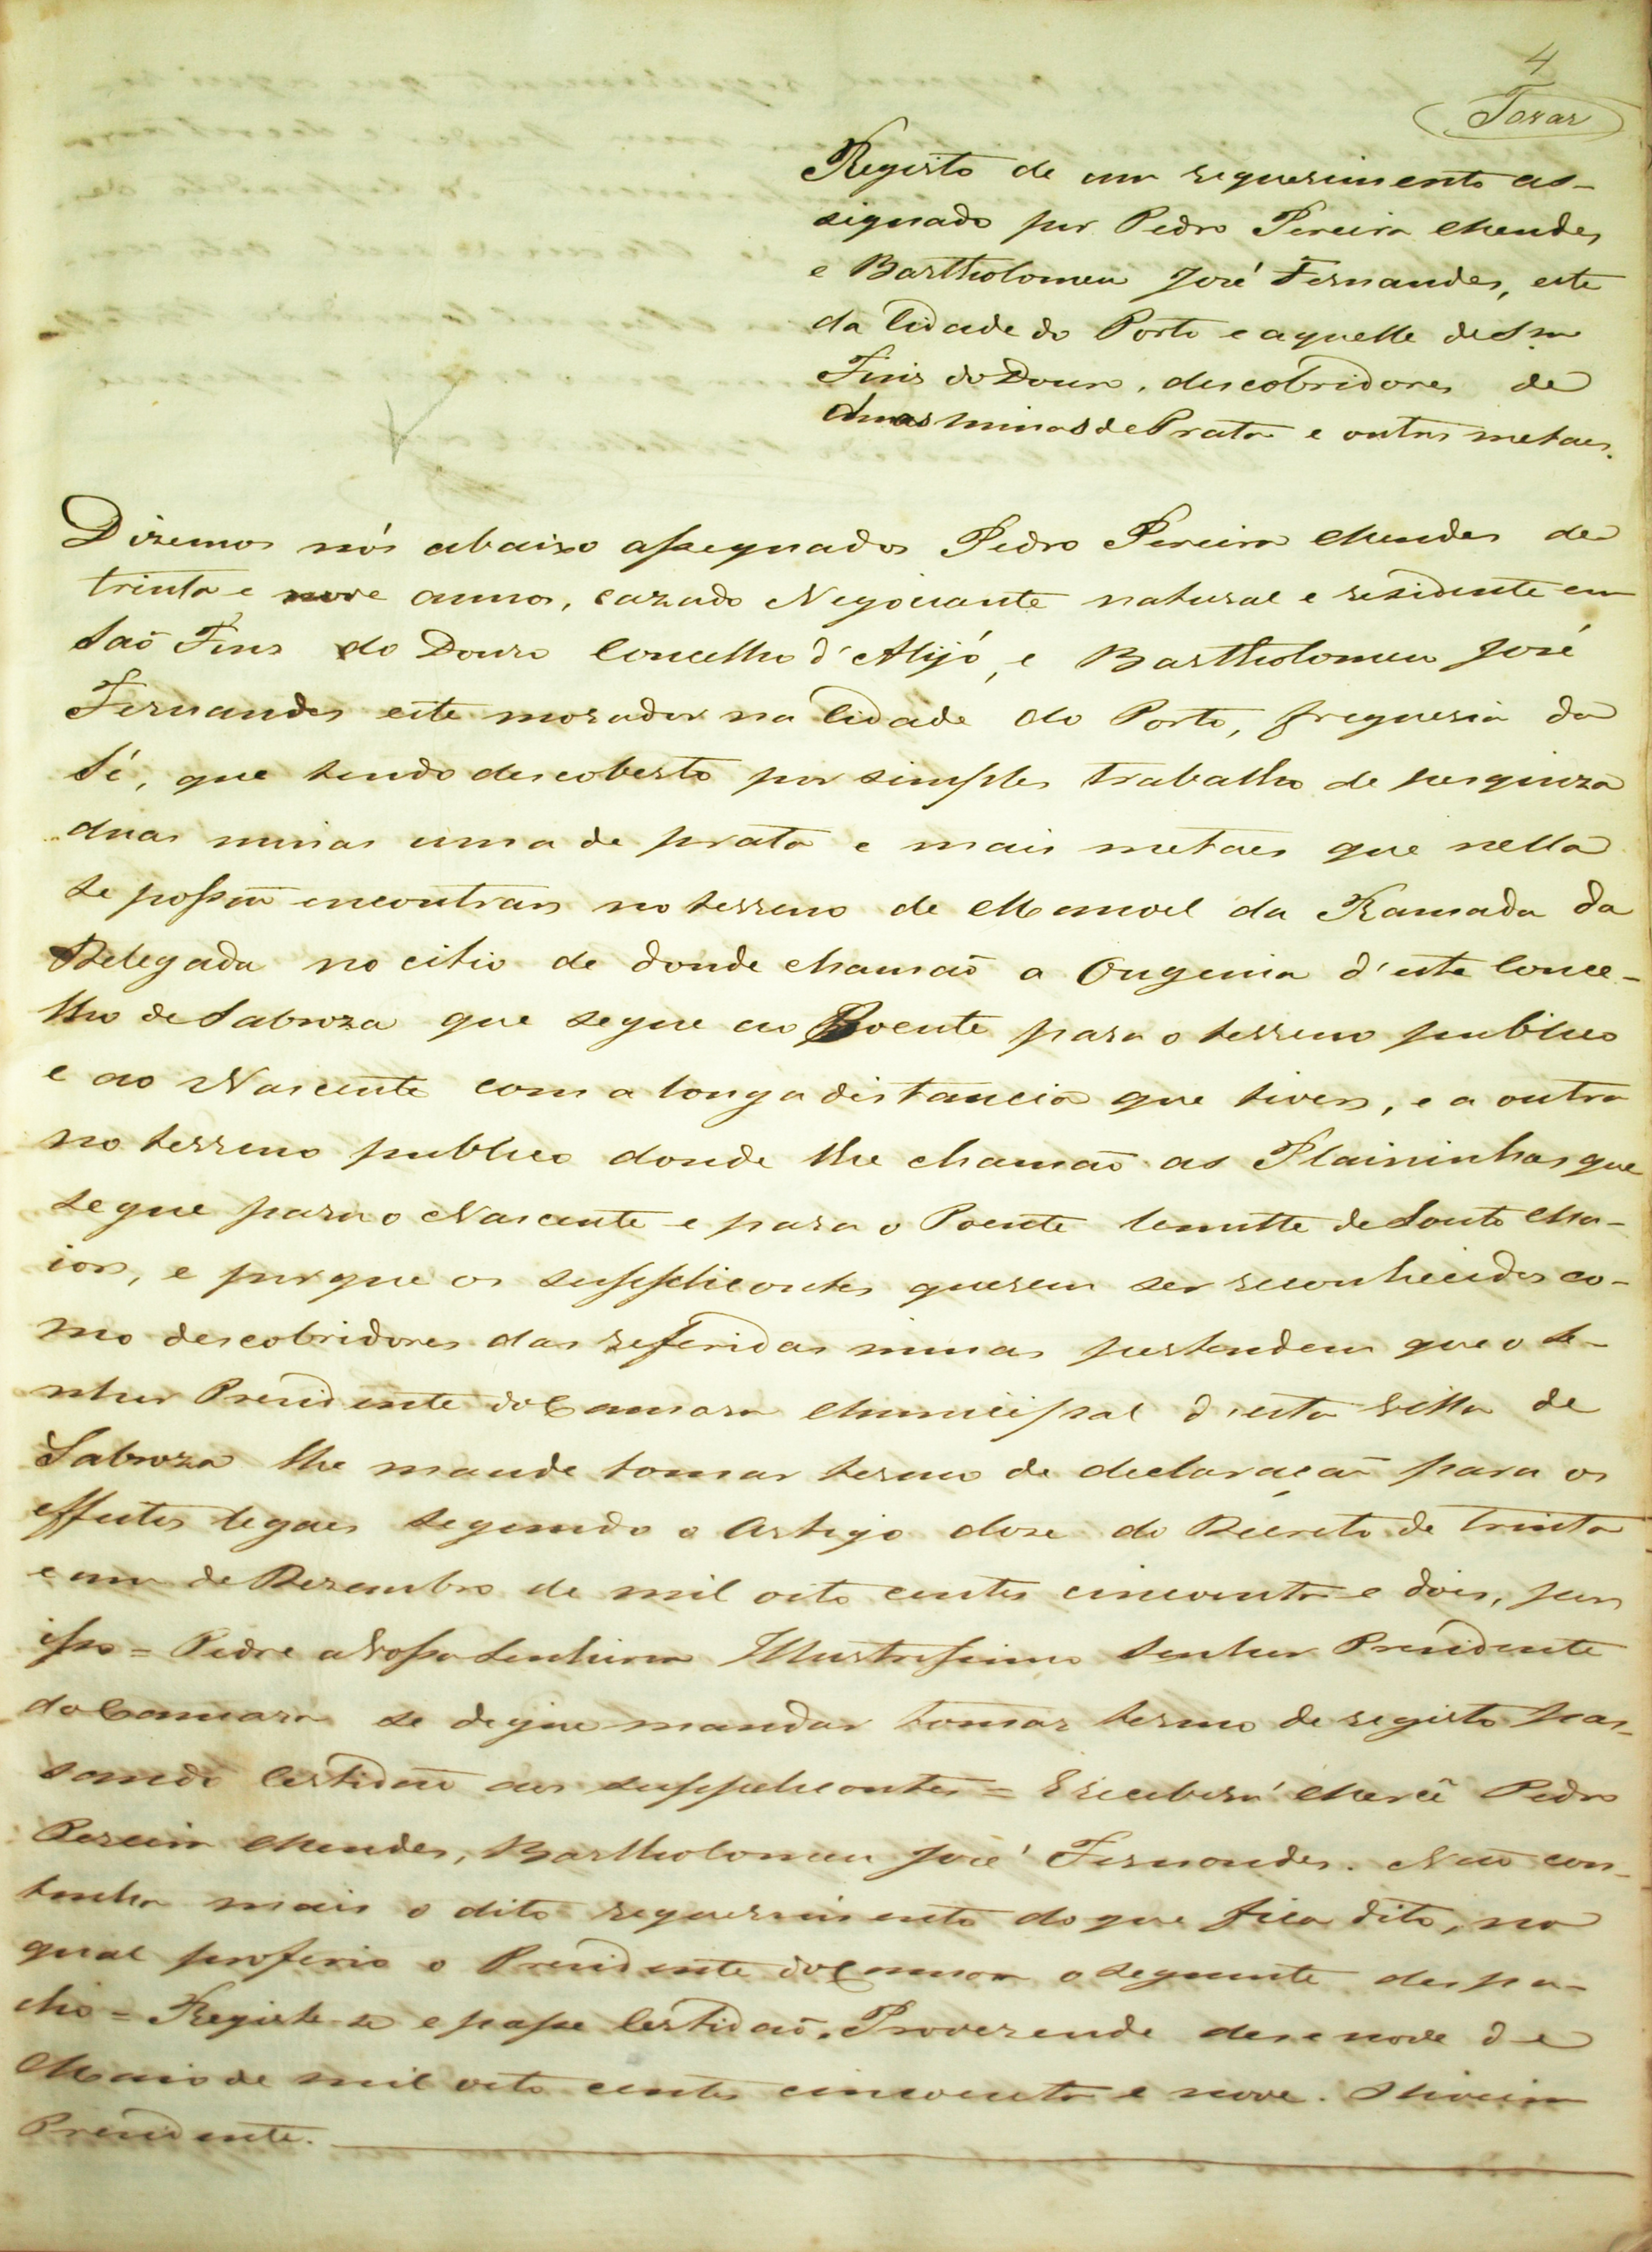 4
Registo de um requerimento as-
signado por Pedro Pereira Mendes
e Bartholomeu José Fernandes, este
da Cidade do Porto e aquelle de Sm
Fins do Douro, descobridores de
duas minas de Prata e outros metaes.
Dizemos nós abaixo assegnados Pedro Pereira Mendes de
trinta e nove annos, cazado Negociante natural e residente em
Saõ Fins do Douro Concelho d'Alijó, e Bartholomeu José
Fernandes este morador na Cidade do Porto, freguesia da
Sé, que tendo descoberto por simples trabalho de pesquiza
duas minas uma de prata e mais metaes que nella
se possaõ encontrar no terreno de Manoel da Ramada da
Delegada no citio de donde chamaõ a Ougenia d'este Conce-
lho de Sabroza que segue ao Poente para o terreno publico
e ao Nascente com a longa distancia que tiver, e a outra
no terreno publico donde lhe chamaõ as Plaininhas que
segue para o Nascente e para o Poente lemitte de Souto Ma-
ior, e porque os supplicantes querem ser reconhecidos co-
mo descobridores das referidas minas pertendem que o Se-
nhor Presidente da Camara Municipal d'esta Villa de
Sabroza lhe mande tomar termo de declaraçaõ para os
effeitos legaes segundo o Artigo doze do Decreto de trinta
e um de Dezembro de mil oito centos cincoenta e dois, por
isso = Pedre a Vossa Senhoria Illustrissimo Senhor Presidente
da Camara se digne mandar tomar termo de registo pas-
sando Certidaõ aos supplicantes = E receberá Mercê Pedro
Pereira Mendes, Bartholomeu José Fernandes. Naõ con-
tenha mais o dito requerimento do que fica dito, no
qual proferio o Presidente da Camara o seguinte despa-
cho = Registe-se e passe Certidaõ. Provezende dezenove de
Maio de mil oito centos cincoenta e nove. Oliveira
Presidente.